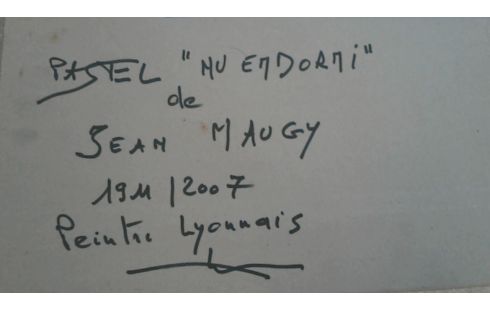 PASTEL "NU ENDORMI"
de
JEAN MAUGY
1911/2007
Peintre Lyonnais